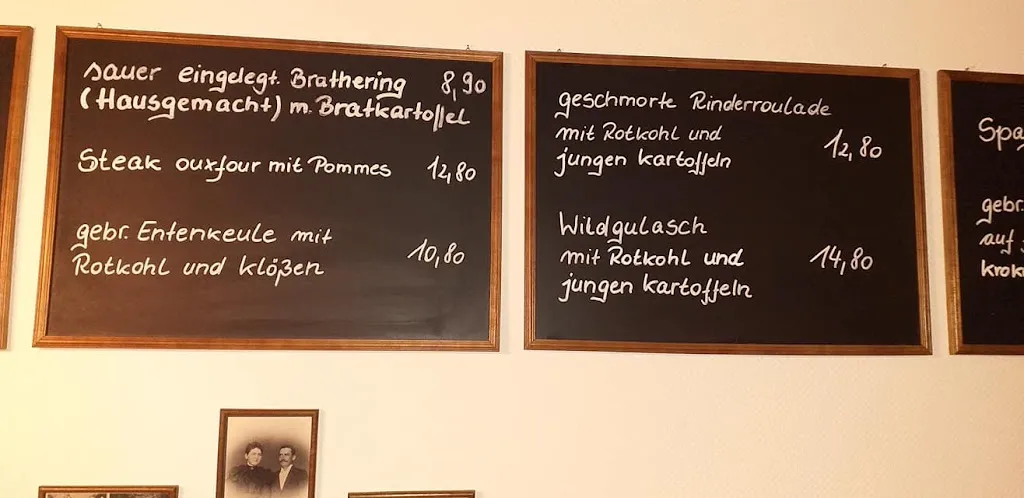 sauer eingelegt. Brathering 8,90
(Hausgemacht) m. Bratkartoffel
Steak ouxfour mit Pommes 12,80
gebr. Entenkeule mit
Rotkohl und klößen 10,80
geschmorte Rinderroulade
mit Rotkohl und 12,80
jungen kartoffeln
Wildgulasch
mit Rotkohl und 14,80
jungen kartoffeln
Spa
gebr.
auf
krok